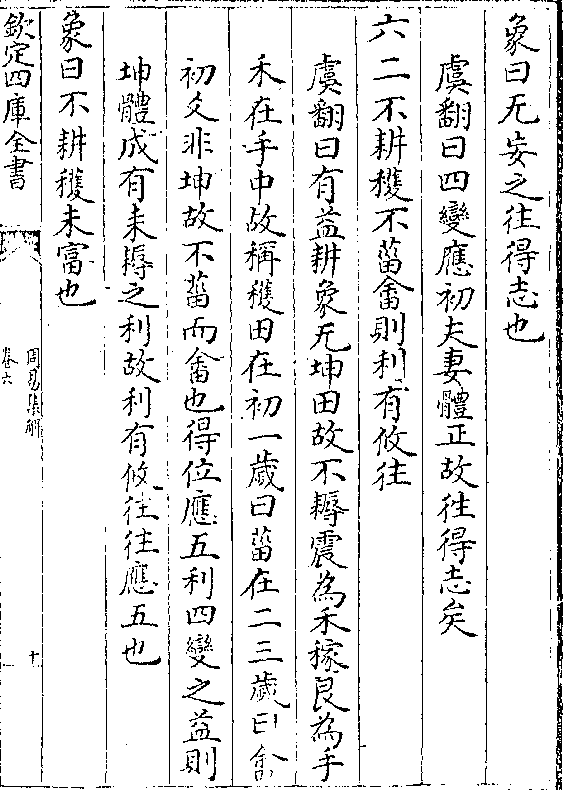 象曰无妄之往得志也
虞翻曰四變應初夫妻體正故往得志矣
六二不耕穫不菑畬則利有攸往
虞翻曰有益耕象无坤田故不耨震為禾稼艮為手
禾在手中故稱穫田在初一歲曰菑在二三歲曰畬
初爻非坤故不菑而畬也得位應五利四變之益則
坤體成有耒耨之利故利有攸往往應五也
象曰不耕穫未富也
欽定四庫全書
周易集解
卷六
十